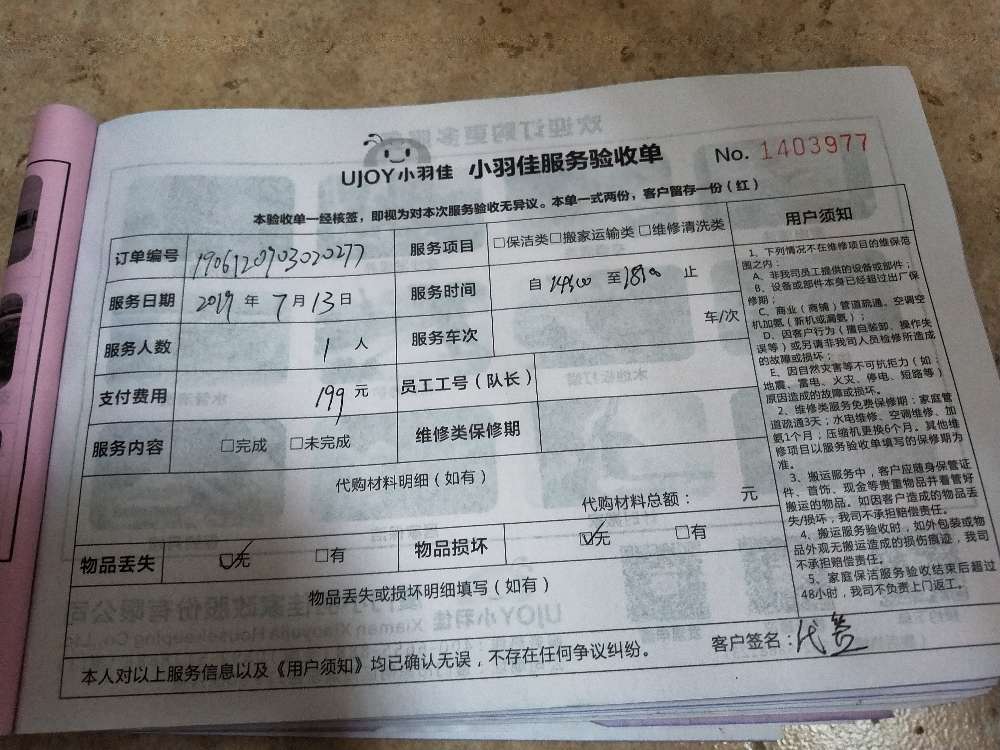 UJOY小羽佳 小羽佳服务验收单 No. 1403977
本验收单一经核签，即视为对本次服务验收无异议。本单一式两份，客户留存一份（红）
订单编号 190612093020277 服务项目 □保洁类□搬家运输类□维修清洗类
服务日期 2019 年 7 月 13 日 服务时间 自 14:00 至 18:00 止
服务人数 1 人 服务车次 车/次
支付费用 199 元 员工工号（队长）
服务内容 □完成 □未完成 维修类保修期
代购材料明细（如有）
代购材料总额： 元
物品丢失 ☑无 □有 物品损坏 ☑无 □有
物品丢失或损坏明细填写（如有）
本人对以上服务信息以及《用户须知》均已确认无误，不存在任何争议纠纷。 客户签名：代签
用户须知
1、下列情况不在维修项目的维保范
围之内：
A、非我司员工提供的设备或部件；
B、设备或部件本身已经超过出厂保
修期；
C、商业（商铺）管道疏通、空调空
机加氨（新机或漏氨）；
D、因客户行为（擅自装卸、操作失
误等）或另请非我司人员检修所造成
的故障或损坏；
E、因自然灾害等不可抗拒力（如：
地震、雷电、火灾、停电、短路等）
原因造成的故障或损坏。
2、维修类服务免费保修期：家庭管
道疏通3天；水电维修、空调维修、加
氨1个月；压缩机更换6个月。其他维
修项目以服务验收单填写的保修期为
准。
3、搬运服务中，客户应随身保管证
件、首饰、现金等贵重物品并看管好
搬运的物品。如因客户造成的物品丢
失/损坏，我司不承担赔偿责任。
4、搬运服务验收时，如外包装或物
品外观无搬运造成的损伤痕迹，我司
不承担赔偿责任。
5、家庭保洁服务验收结束后超过
48小时，我司不负责上门返工。